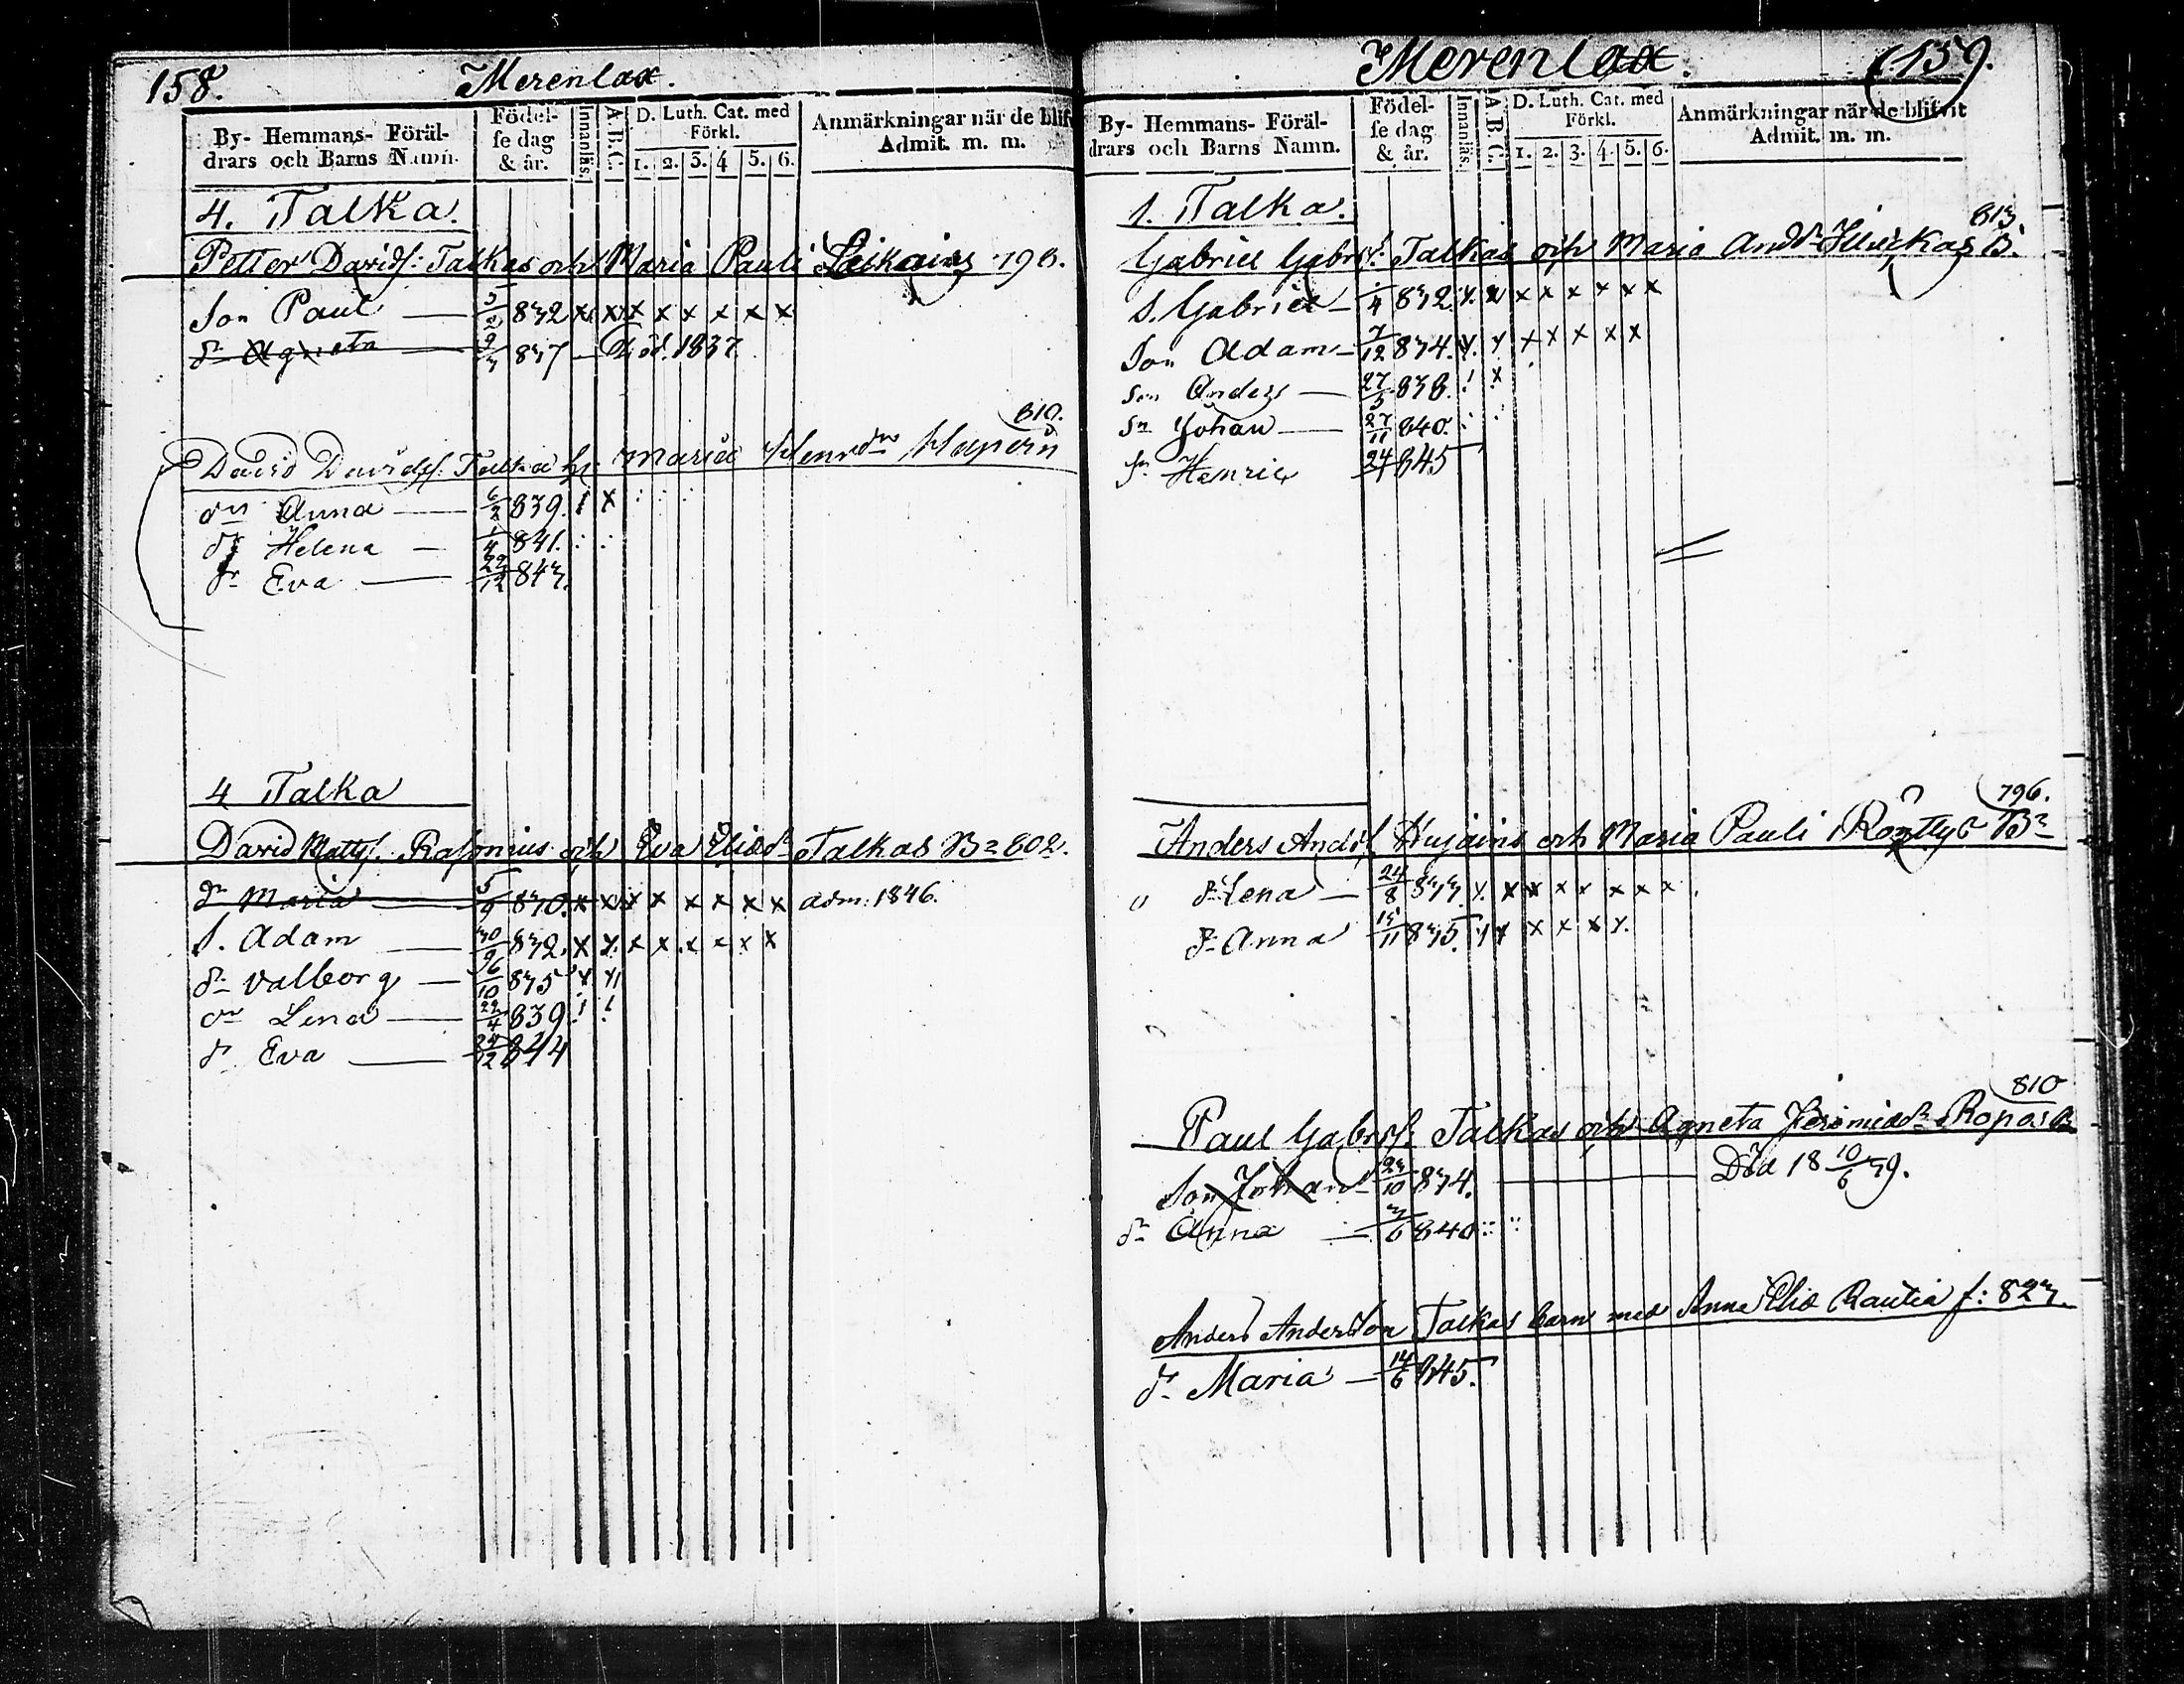 158. Merenlax.
By- Hemmans- Föräl-
drars och Barns Namn.
Födel-
se dag
& år.
Innanläs.
A.B.C.
D. Luth. Cat. med
Förkl.
1. 2. 3. 4 5. 6.
Anmärkningar när de blif
Admit. m. m.
4. Talka.
Petter Davids: Talkas och Maria Pauli 798.
Son Paul — 5/2 832 x x x x x x x x
dr Agneta — 9/3 837 — Död. 1837
810.
David Davids. Talka h: Maria Henrdr
dr Anna — 6/2 839. x
dr Helena — 1/4 841.
dr Eva — 22/12 843.
4 Talka
David Matts. och Eva Eliædr Talkas Br 802.
dr Maria — 5/9 830. x x x x x x x x adm: 1846.
S. Adam — 30/9 832. x x x x x x x x
dr Valborg — 26/10 835 x x
dr Lena — 22/4 839
dr Eva — 24/12 844
Merenlax. 159.
By- Hemmans- Föräl-
drars och Barns Namn.
Födel-
se dag
& år.
Innanläs.
A.B.C.
D. Luth. Cat. med
Förkl.
1. 2. 3. 4. 5. 6.
Anmärkningar när de blifvit
Admit. m. m.
1. Talka.
813.
Gabriel Gabrs: Talkas och Maria Anddr B.
S. Gabriel — /4 832. x x x x x x x x
Son Adam — 7/12 834. x x x x x x x
Son Anders — 27/5 838. x
Sn Johan — 27/11 840.
Sn Henric 24/ 845
796.
Anders Ands. och Maria Pauli Br
" dr Lena — 24/8 833. x x x x x x x x
dr Anna 15/11 835. x x x x x x
810
Paul Gabrs: Talkas och Agneta Jeremiædr
Son Johan — 23/10 834. — Död 18 10/6 39.
dr Anna — 3/6 840
Anders Andersson Talkas barn med Anna Eliæ Rautia f: 823.
dr Maria — 14/6 845.